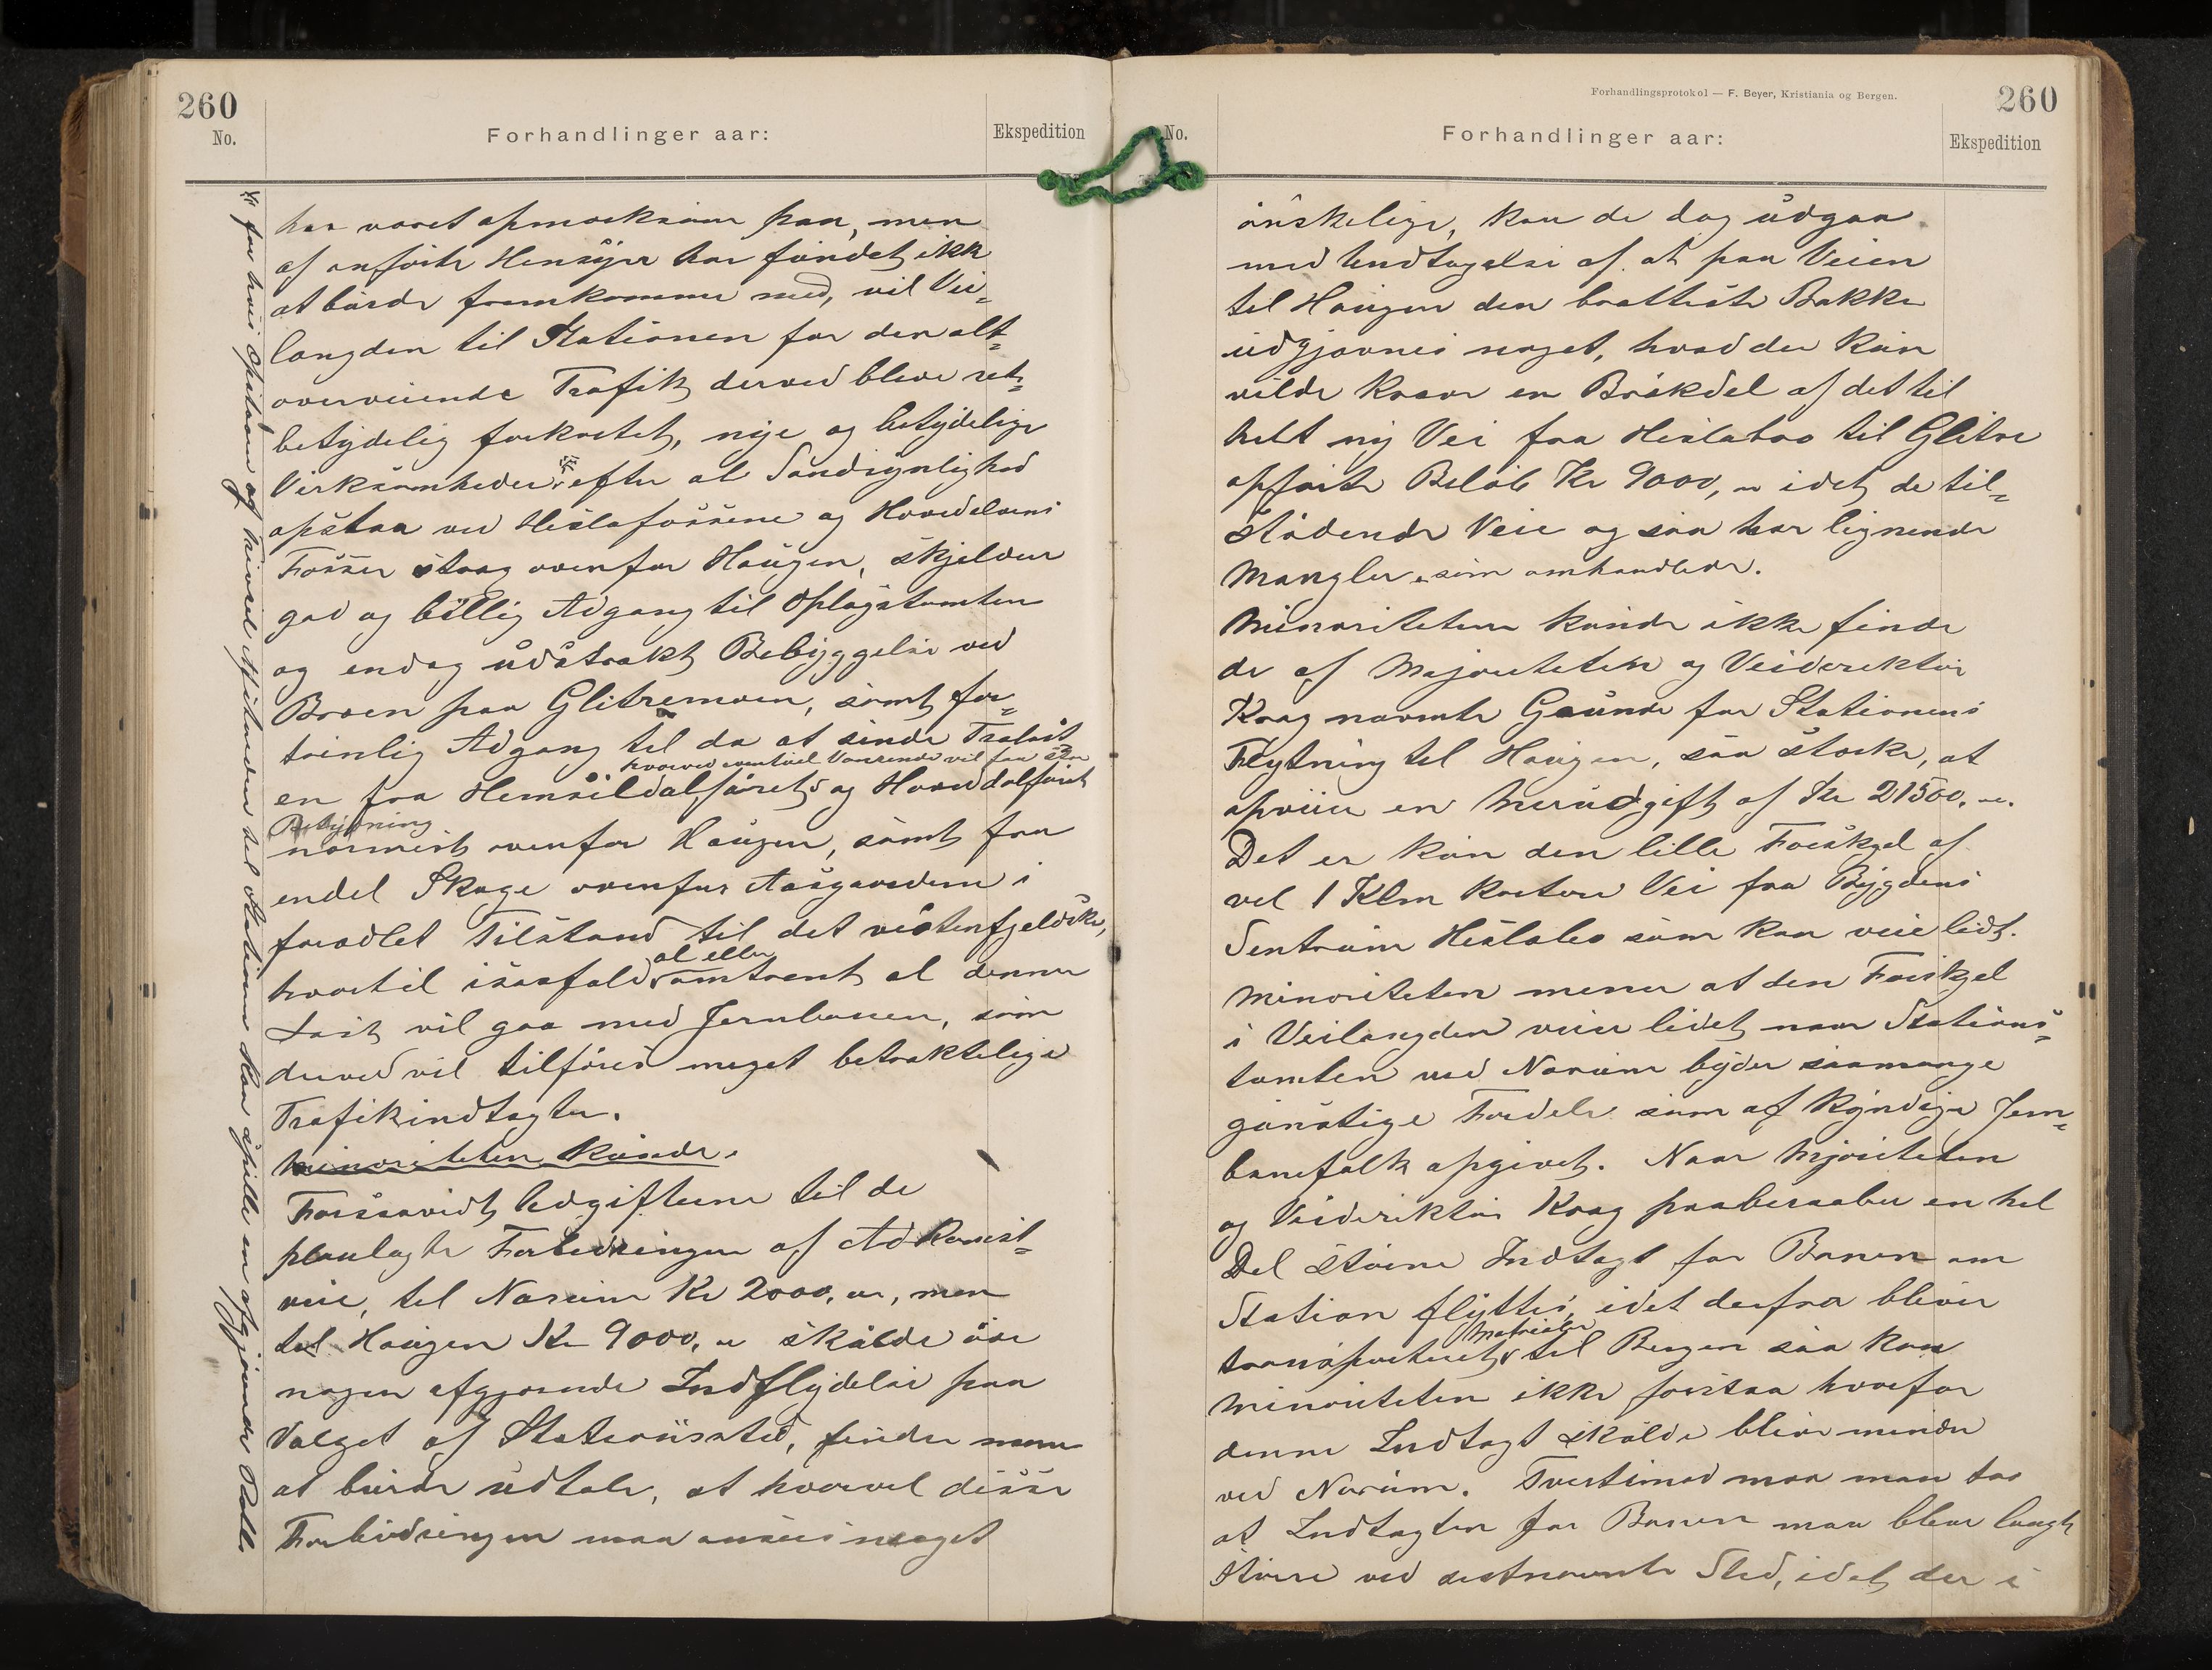 260
No.
Forhandlinger aar:
Ekspedition
har været opmærksom paa, men
af anførte Hensyn har fundet ikke
at burde fremkomme med, vil Vei-
længden til Stationen for den alt-
overveiende Trafik derved blive ret
betydelig forkortet, nye og betydelige
Virksomheder * efter al Sandsynlighed
opstaa ved Heslafossene og Hovedelvens
Fosser strag ovenfor Haugen, skjelden
god og billig Adgang til Oplagstomten
og endog udstrakt Bebyggelse ved
Broen paa Glitremoen, samt for-
trinlig Adgang til da at sende Trælast
hvorved eventuel vil faa stor
en fra Hemsildalføret og Hoveddalføret
Betydning
nærmest ovenfor Haugen, samt fra
endel Skoge ovenfor Aasgaardene i
forædlet Tilstand til det vestenfjeldske,
al eller
hvortil isaafald omtrent al denne
Last vil gaa med Jernbanen, som
derved vil tilføres meget betraktelige
Trafikindtægter.
Minoriteten kunde.
Forsaavidt Udgifterne til de
planlagte Forbedringer af Adkomst-
veie, til Nørsim Kr 2000,00, men
til Haugen Kr 9000,00 skulde øve
nogen afgjørende Indflydelse paa
Valget af Stationssted, finder man
at burde udtale, at hvorvel disse
Forbedringer maa ansees meget
* for hvis og Trafik til Stationen kan spille en afgjørende Rolle
Forhandlingsprotokol — F. Beyer, Kristiania og Bergen.
260
No.
Forhandlinger aar:
Ekspedition
ønskelige, kan de dog udgaa
med Undtagelse af at paa Veien
til Haugen den bratteste Bakke
udgjævnes noget, hvad der kun
vilde kræve en Brøkdel af det til
helt ny Vei fra Heslabro til Glitre
opførte Beløb Kr 9000,00 idet de til-
stødende Veie og saa har lignende
Mangler, som omhandlede.
Minoriteten kunde ikke finde
de af Majoriteten og Veidirektør
Krag nævnte Grunde for Stationens
Flytning til Haugen, saa stærke, at
opveie en Merudgift af Kr 21500,00.
Det er kun den lille Forskjel af
vel 1 Klm kortere Vei fra Bygdens
Sentrum Heslabro som kan veie lidt.
Minoriteten mener at den Forskjel
i Veilængden veier lidet naar Stations-
tomten ved Nørsim byder saamange
gunstige Fordele som af kyndige Jern-
banefolk opgivet. Naar Mjoriteten
og Veidirektør Krag paaberaaber en hel
Del større Indtægt for Banen om
Station flyttes, idet derfra bliver
Materialer
transporteret til Bergen saa kan
Minoriteten ikke forstaa hvorfor
denne Indtægt skulde blive mindre
ved Nørsim. Tvertimod maa man tro
at Indtægten for Banen maa blive langt
større ved sistnævnte Sted, idet der i